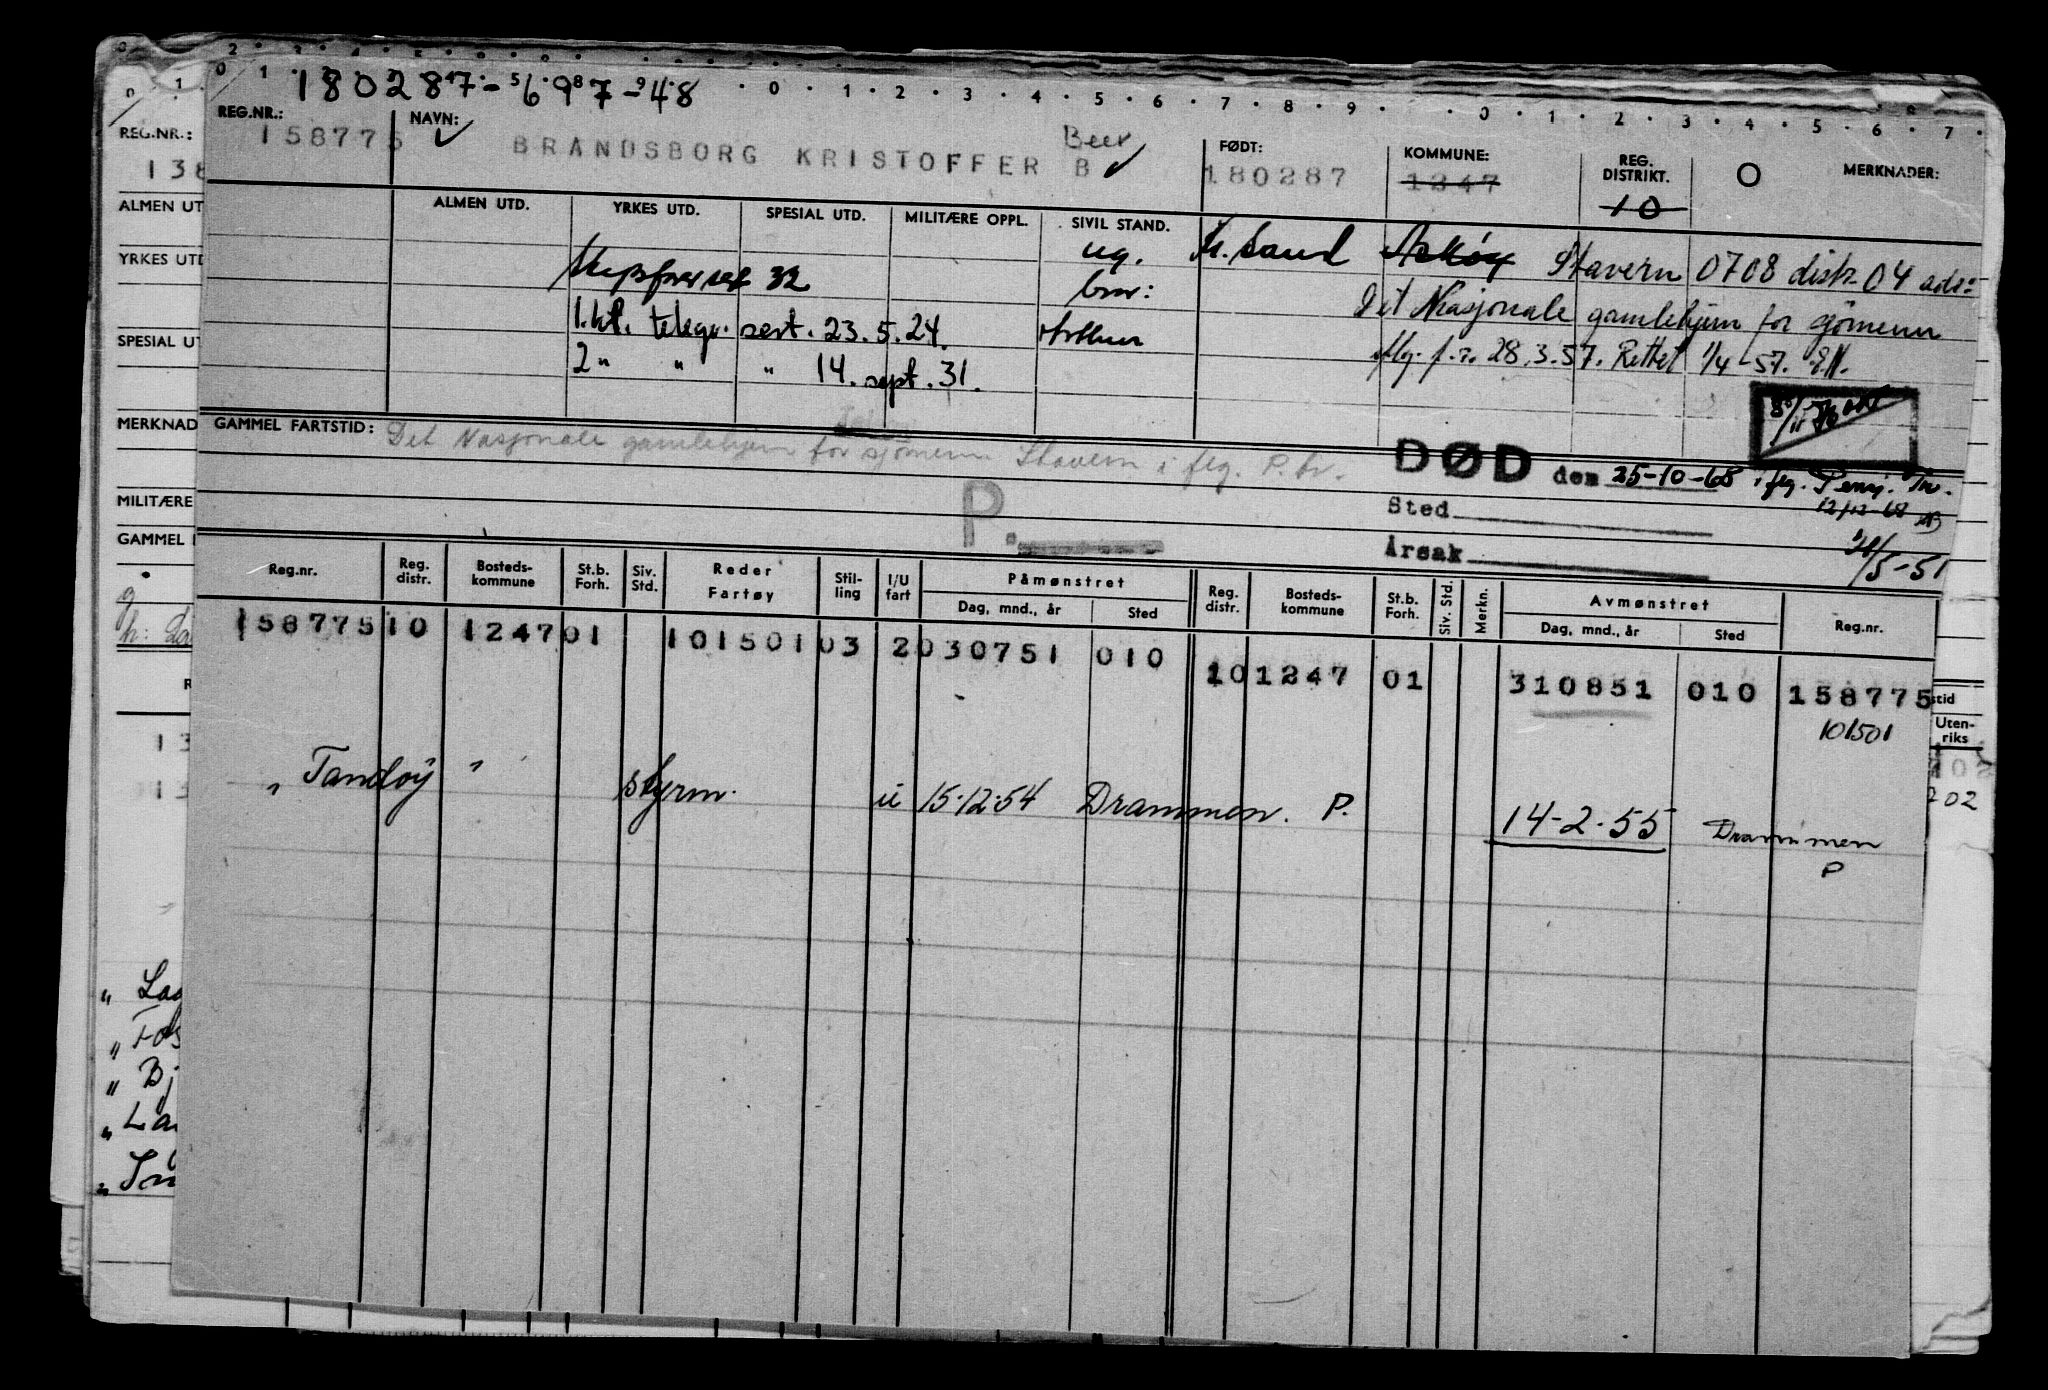 180287-56987-948
0 1 2 3 4 5 6 7 8 9 0 1 2 3 4 5 6 7
REG.NR.: NAVN: FØDT: KOMMUNE: REG. DISTRIKT. O MERKNADER:
158775 BRANDSBORG KRISTOFFER B Beer 180287 1247 10
ALMEN UTD. YRKES UTD. SPESIAL UTD. MILITÆRE OPPL. SIVIL STAND.
ug. Kr. sand Askøy Stavern 0708 distr. 04 adr:
32 bror: Det Nasjonale gamlehjem for sjömenn
1.kl. telegr. sert. 23.5.24. Arthur flg. f.r. 28.3.57. Rettet 1/4-57.
2 " " " 14. sept. 31.
GAMMEL FARTSTID: Det Nasjonale gamlehjem for sjömenn Stavern i flg. P. br.
DØD den 25-10-68 i flg. Pensj. Tr.
12/12-68
P. Sted
Årsak
21/5-51
Reg.nr. Reg. distr. Bosteds-kommune St.b. Forh. Siv. Std. Reder Fartøy Stil-ling I/U fart Påmønstret Dag, mnd., år Sted Reg. distr. Bosteds-kommune St.b. Forh. Siv. Std. Merkn. Avmønstret Dag, mnd., år Sted Reg.nr.
158775 10 1247 01 101501 03 2 030751 010 10 1247 01 310851 010 158775
101501
" Tandöy " styrm. u 15.12.54 Drammen. P. 14-2-55 Drammen
P
REG.NR.:
138
ALMEN UT
YRKES UTD
SPESIAL UT
MERKNAD
MILITÆRE
GAMMEL
R
13
stid
Uten-
riks
702
" Bj